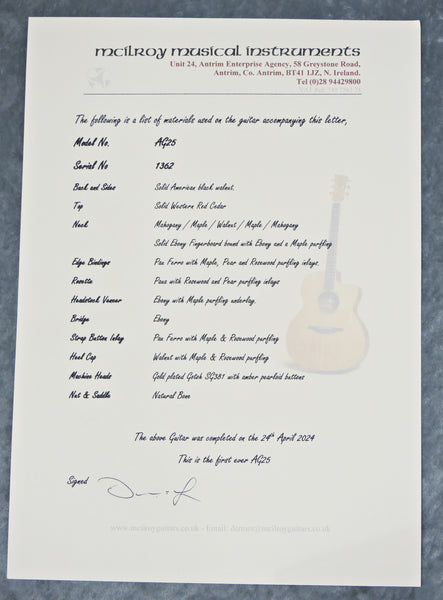 mcilroy musical instruments
Unit 24, Antrim Enterprise Agency, 58 Greystone Road,
Antrim, Co. Antrim, BT41 1JZ, N. Ireland.
Tel (0)28 94429800
The following is a list of materials used on the guitar accompanying this letter,
Model No. AG25
Serial No 1362
Back and Sides Solid American black walnut.
Top Solid Western Red Cedar
Neck Mahogany / Maple / Walnut / Maple / Mahogany
Solid Ebony Fingerboard bound with Ebony and a Maple purfling
Edge Bindings Pau Ferro with Maple, Pear and Rosewood purfling inlays.
Rosette Paua with Rosewood and Pear purfling inlays
Headstock Veneer Ebony with Maple purfling underlay.
Bridge Ebony
Strap Button Inlay Pau Ferro with Maple & Rosewood purfling
Heel Cap Walnut with Maple & Rosewood purfling
Machine Heads Gold plated Gotoh SG381 with amber pearloid buttons
Nut & Saddle Natural Bone
The above Guitar was completed on the 24th April 2024
This is the first ever AG25
Signed
www.mcilroyguitars.co.uk - Email: dermot@mcilroyguitars.co.uk